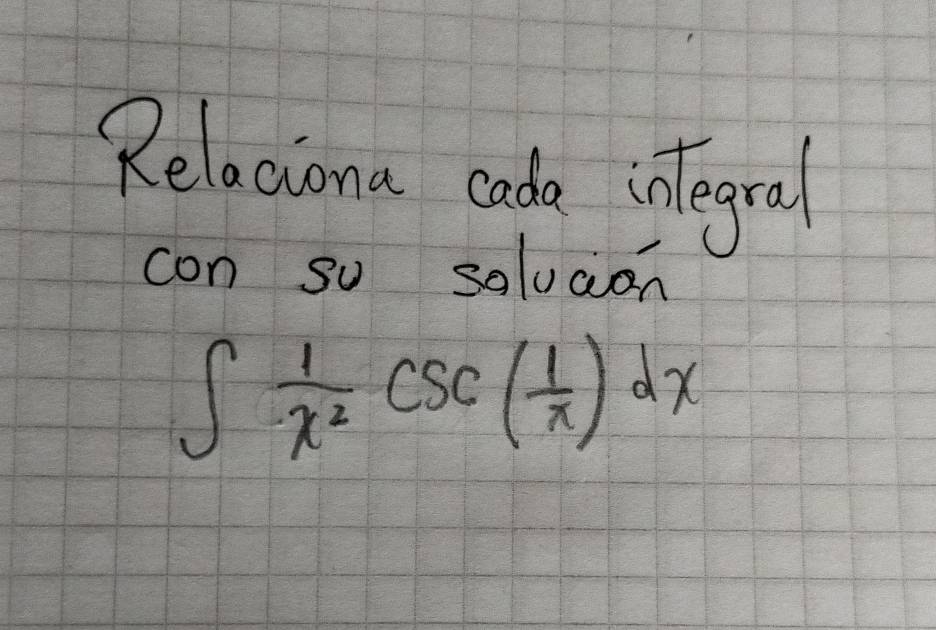 Relaciona cada integral
con su solución
∫ 1/x² csc (1/x) dx